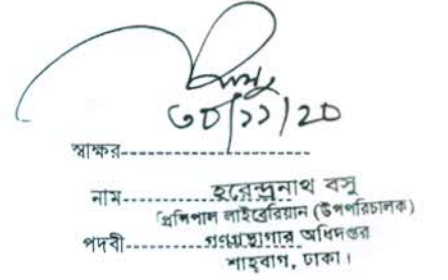 ৩০/১১/২০
স্বাক্ষর--------------------
নাম------------ হরেন্দ্রনাথ বসু
প্রিন্সিপাল লাইব্রেরিয়ান (উপপরিচালক)
পদবী------------ গণগ্রন্থাগার অধিদপ্তর
শাহবাগ, ঢাকা।